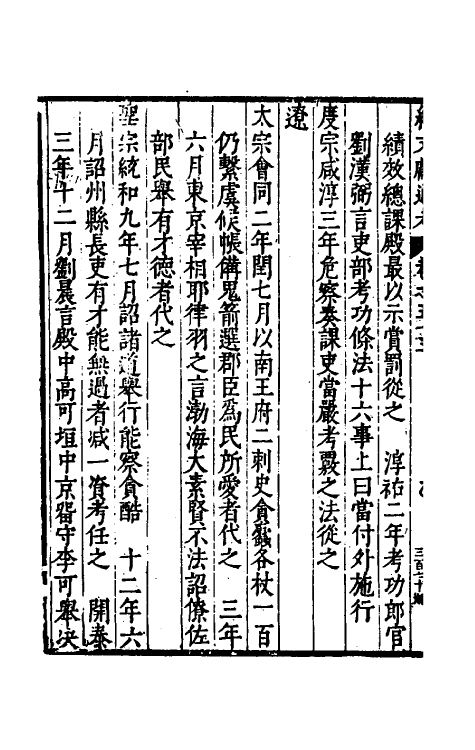 績效總課殿最以示賞罰從之　淳祐二年考功郎官
劉漢弼言吏部考功條法十六事上曰當付外施行
度宗咸淳三年危察奏課吏當嚴考覈之法從之
遼
太宗會同二年閏七月以南王府二刺史貪蠹各杖一百
仍繫虞候帳備鬼箭選郡臣爲民所愛者代之　三年
六月東京宰相耶律羽之言渤海大素賢不法詔僚佐
部民舉有才德者代之
聖宗統和九年七月詔諸道舉行能察貪酷　十二年六
月詔州縣長吏有才能無過者减一資考任之　開泰
三年十二月劉晨言殿中高可垣中京留守李可舉决